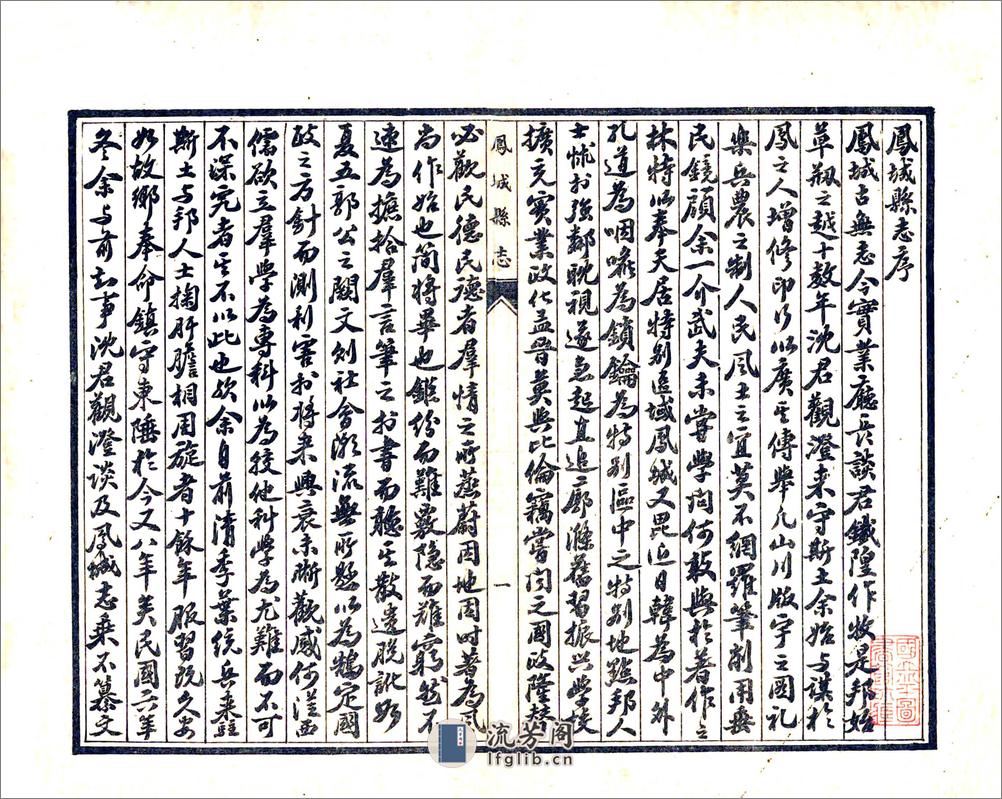 鳳城縣志序
鳳城古無志今實業廳長談君鐵隍作牧是邦始
草刱之越十數年沈君觀澄來守斯土余始与謀於
鳳之人增修印行以廣其傳舉凡山川版宇之圖礼
樂兵農之制人民風土之宜莫不網羅筆削用垂
民鏡顧余一介武夫未嘗學問何敢與於著作之
林特以奉天居特別區域鳳城又毘近日韓為中外
孔道為咽喉為鎖鑰為特別區中之特別地點邦人
士怵於強鄰眈視遂急起直追廓滌舊習振興學校
擴充實業政化益晉莫與比倫竊嘗聞之國政隆替
鳳城縣志
一
必觀民德民德者羣情之所蒸蔚因地因時著為風
尚作始也簡將畢也鉅紛而難竅隱而難窮然不
速為摭拾羣言筆之於書而聽其散遺脫訛將
夏五郭公之闕文則社會潮流無所懸以為鵠定國
政之方針而測利害於將來興衰未漸觀感何從西
儒欲立羣學為專科以為較他科學為尤難而不可
不深究者其不以此也歟余自前清季葉統兵來駐
斯土与邦人士掬肝膽相周旋者十餘年服習既久安
如故鄉奉命鎮守東陲於今又八年矣民國六年
冬余与前知事沈君觀澄談及鳳城志乘不纂文
流芳阁
lfglib.cn